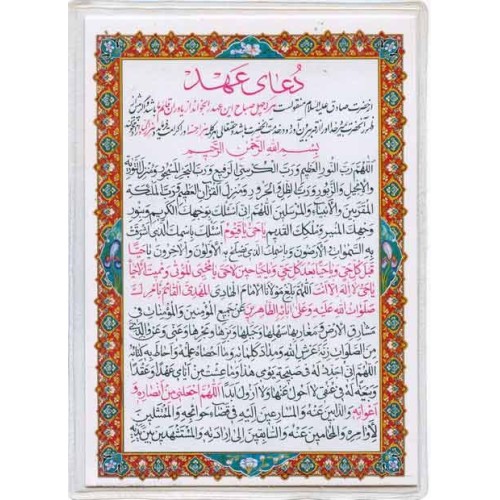 دُعای عهد
از حضرت صادق علیه السلام منقولست هرکه چهل صباح این عهد را بخواند از یاوران قائم ما باشد و اگر پیش از
ظهور آنحضرت بمیرد خدا او را از قبر بیرون آورد و در خدمت آنحضرت باشد و حقتعالی
بِسْمِ اللّٰهِ الرَّحْمٰنِ الرَّحیمِ
اَللّٰهُمَّ رَبَّ النُّورِ الْعَظیمِ وَ رَبَّ الْکُرْسِیِّ الرَّفیعِ وَ رَبَّ الْبَحْرِ الْمَسْجُورِ وَ مُنْزِلَ التَّوْریةِ
وَ الْاِنْجیلِ وَ الزَّبُورِ وَ رَبَّ الظِّلِّ وَ الْحَرُورِ وَ مُنْزِلَ الْقُرْآنِ الْعَظیمِ وَ رَبَّ الْمَلٰئِکَةِ
الْمُقَرَّبینَ وَ الْاَنْبِیآءِ وَ الْمُرْسَلینَ اَللّٰهُمَّ اِنّی اَسْئَلُکَ بِوَجْهِکَ الْکَریمِ وَ بِنُورِ
وَجْهِکَ الْمُنیرِ وَ مُلْکِکَ الْقَدیمِ یا حَیُّ یا قَیُّومُ اَسْئَلُکَ بِاسْمِکَ الَّذی اَشْرَقَتْ
بِهِ السَّمٰوٰاتُ وَ الْاَرَضُونَ وَ بِاسْمِکَ الَّذی یَصْلَحُ بِهِ الْاَوَّلُونَ وَ الْاٰخِرُونَ یا حَیًّا
قَبْلَ کُلِّ حَیٍّ وَ یا حَیًّا بَعْدَ کُلِّ حَیٍّ وَ یا حَیًّا حینَ لا حَیَّ یا مُحْیِیَ الْمَوْتیٰ وَ مُمیتَ الْاَحْیآءِ
یا حَیُّ لا اِلٰهَ اِلّا اَنْتَ اَللّٰهُمَّ بَلِّغْ مَوْلانَا الْاِمامَ الْهادِیَ الْمَهْدِیَّ الْقآئِمَ بِاَمْرِکَ
صَلَواتُ اللّٰهِ عَلَیْهِ وَ عَلیٰ اٰبآئِهِ الطّاهِرینَ عَنْ جَمیعِ الْمُؤْمِنینَ وَ الْمُؤْمِناتِ فی
مَشارِقِ الْاَرْضِ وَ مَغارِبِها سَهْلِها وَ جَبَلِها وَ بَرِّها وَ بَحْرِها وَ عَنّی وَ عَنْ والِدَیَّ
مِنَ الصَّلَواتِ زِنَةَ عَرْشِ اللّٰهِ وَ مِدادَ کَلِماتِهِ وَ ما اَحْصاهُ عِلْمُهُ وَ اَحاطَ بِهِ کِتابُهُ
اَللّٰهُمَّ اِنّی اُجَدِّدُ لَهُ فی صَبیحَةِ یَوْمی هٰذا وَ ما عِشْتُ مِنْ اَیّامی عَهْدًا وَ عَقْدًا
وَ بَیْعَةً لَهُ فی عُنُقی لا اَحُولُ عَنْها وَ لا اَزُولُ اَبَدًا اَللّٰهُمَّ اجْعَلْنی مِنْ اَنْصارِهِ وَ
اَعْوانِهِ وَ الذّابّینَ عَنْهُ وَ الْمُسارِعینَ اِلَیْهِ فی قَضآءِ حَوآئِجِهِ وَ الْمُمْتَثِلینَ
لِاَوامِرِهِ وَ الْمُحامینَ عَنْهُ وَ السّابِقینَ اِلیٰ اِرادَتِهِ وَ الْمُسْتَشْهَدینَ بَیْنَ یَدَیْهِ